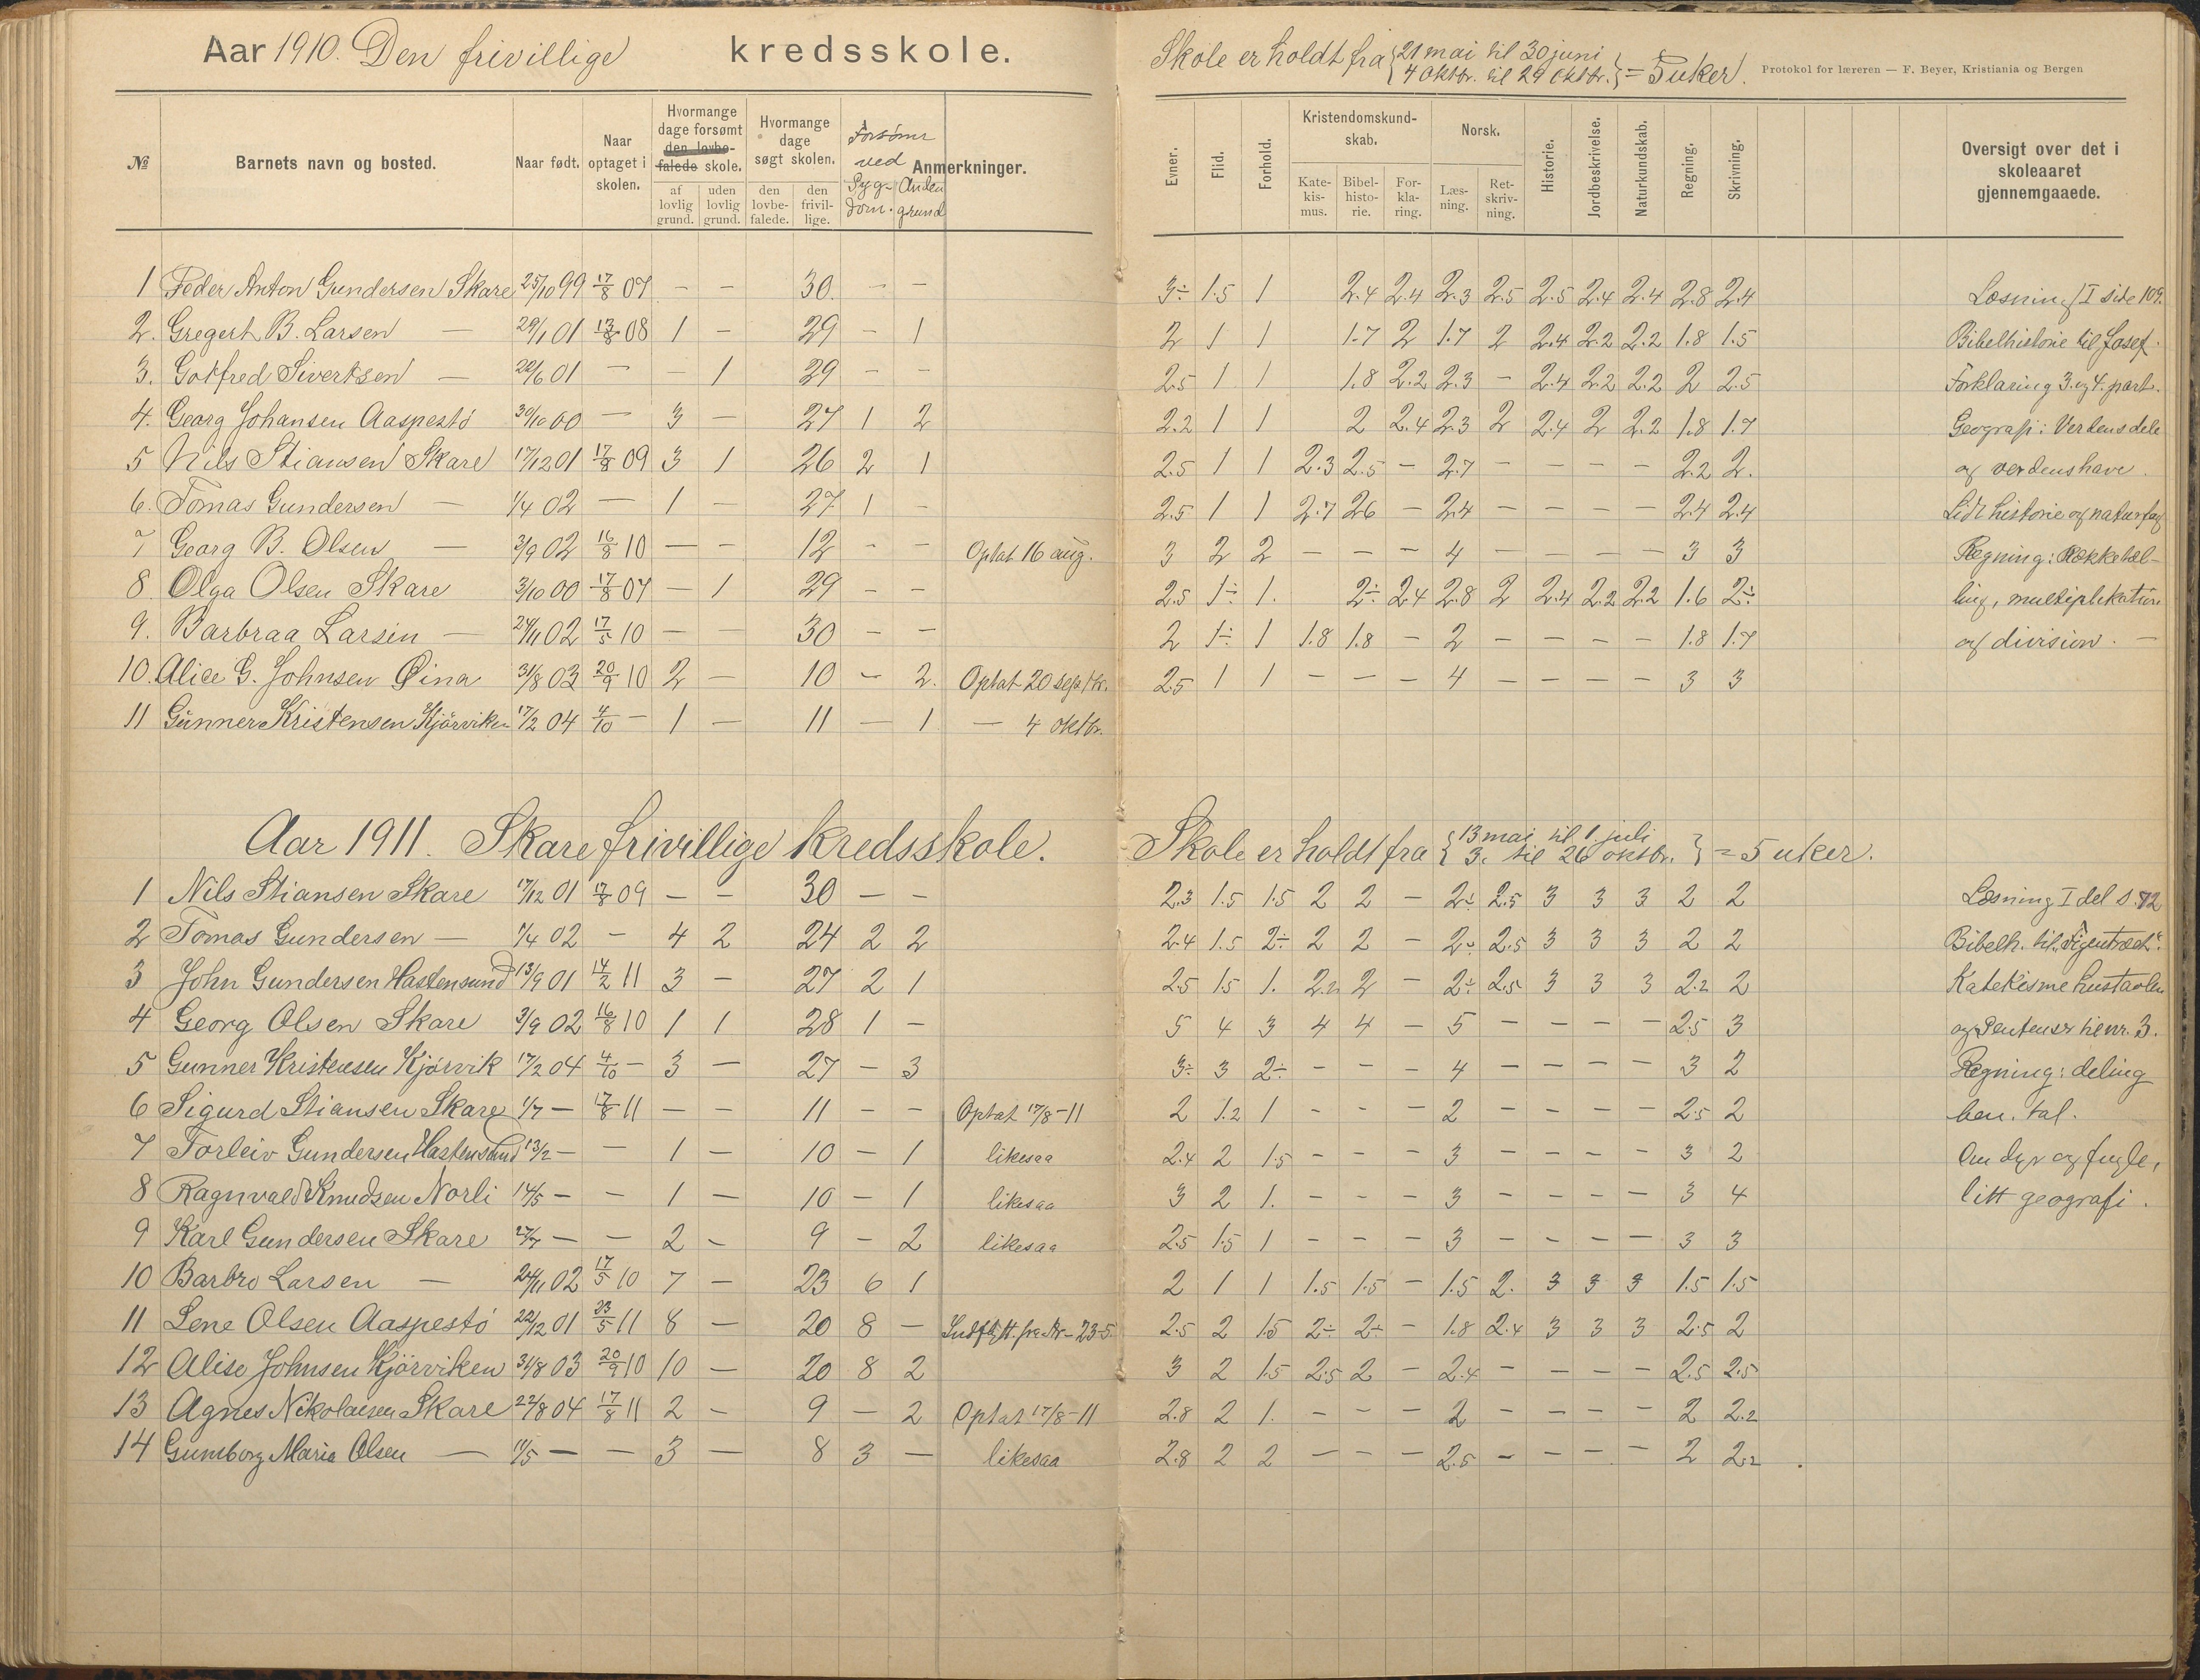 Aar 1910. Den frivillige kredsskole.
№ Barnets navn og bosted. Naar født. Naar optaget i skolen. Hvormange dage forsømt den lovbefalede skole. af lovlig grund. uden lovlig grund. Hvormange dage søgt skolen. den lovbefalede. den frivillige. Forsømt ved Sygdom. Anden grund Anmerkninger.
1 Peder Anton Gundersen Skare 25/10 99 17/8 07 - - 30. - -
2. Gregert B. Larsen — 29/1 01 13/8 08 1 - 29 - 1
3. Gotfred Sivertsen — 22/6 01 — - 1 29 - -
4. Georg Johansen Aaspestö 30/10 00 — 3 - 27 1 2
5 Nils Stiansen Skare 17/12 01 17/8 09 3 1 26 2 1
6. Tomas Gundersen — 1/4 02 — 1 - 27 1 -
7 Georg B. Olsen — 3/9 02 16/8 10 — - 12 - - Optat 16 aug.
8. Olga Olsen Skare 3/10 00 17/8 07 — 1 29 - -
9. Barbraa Larsen — 24/11 02 17/5 10 — - 30 - -
10. Alice G. Johnsen Øina 31/8 03 20/9 10 2 — 10 - 2. Optat 20 septbr.
11 Gunner Kristensen Kjörviken 17/2 04 4/10 — 1 — 11 — 1 — 4 oktbr.
Aar 1911. Skare frivillige kredsskole.
1 Nils Stiansen Skare 17/12 01 17/8 09 — - 30 — -
2 Tomas Gundersen — 1/4 02 - 4 2 24 2 2
3 John Gundersen Hastensund 13/9 01 14/2 11 3 - 27 2 1
4 Georg Olsen Skare 3/9 02 16/8 10 1 1 28 1 -
5 Gunner Kristensen Kjörvik 17/2 04 4/10 - 3 — 27 - 3
6 Sigurd Stiansen Skare 1/7 — 17/8 11 — - 11 - - Optat 17/8-11
7 Torleiv Gundersen Hastensund 13/2 - — 1 - 10 - 1 likesaa
8 Ragnvald Knudsen Norli 14/5 - - 1 — 10 - 1 likesaa
9 Karl Gundersen Skare 27/7 — - 2 - 9 - 2 likesaa
10 Barbro Larsen — 24/11 02 17/5 10 7 - 23 6 1
11 Lene Olsen Aaspestö 22/12 01 23/5 11 8 — 20 8 — Indflytt. fra Ar - 23-5.
12 Alise Johnsen Kjörviken 31/8 03 20/9 10 10 — 20 8 2
13 Agnes Nikolaisen Skare 22/8 04 17/8 11 2 - 9 - 2 Optat 17/8-11
14 Gunsborg Maria Olsen — 11/5 — - 3 — 8 3 — likesaa
Skole er holdt fra { 21 mai til 30 juni
4 oktbr. til 29 oktbr. } = 5 uker.
Protokol for læreren — F. Beyer, Kristiania og Bergen
Evner. Flid. Forhold. Kristendomskundskab. Katekismus. Bibelhistorie. Forklaring. Norsk. Læsning. Retskrivning. Historie. Jordbeskrivelse. Naturkundskab. Regning. Skrivning. Oversigt over det i skoleaaret gjennemgaaede.
3÷ 1.5 1 2.4 2.4 2.3 2.5 2.5 2.4 2.4 2.8 2.4 Læsning I side 109.
2 1 1 1.7 2 1.7 2 2.4 2.2 2.2 1.8 1.5 Bibelhistorie til Josef.
2.5 1 1 1.8 2.2 2.3 - 2.4 2.2 2.2 2 2.5 Forklaring 3. og 4. part.
2.2 1 1 2 2.4 2.3 2 2.4 2 2.2 1.8 1.7 Geografi: Verdensdele
2.5 1 1 2.3 2.5 - 2.7 - - - - 2.2 2. og verdenshave.
2.5 1 1 2.7 26 - 2.4 - - - - 2.4 2.4 Lidt historie og naturfag
3 2 2 - - - 4 - - - - 3 3 Regning: Rækketæl-
2.5 1÷ 1. 2÷ 2.4 2.8 2 2.4 2.2 2.2 1.6 2÷ ling, multiplikation
2 1÷ 1 1.8 1.8 - 2 - - - - 1.8 1.7 og division. —
2.5 1 1 - - - 4 - - - - 3 3
Skole er holdt fra { 13 mai til 1 juli
3. til 26 oktbr. } = 5 uker.
2.3 1.5 1.5 2 2 - 2÷ 2.5 3 3 3 2 2 Læsning I del s. 72
2.4 1.5 2÷ 2 2 - 2÷ 2.5 3 3 3 2 2 Bibelh. til „Figentræet“.
2.5 1.5 1. 2.2 2 - 2÷ 2.5 3 3 3 2.2 2 Katekisme hustavlen
5 4 3 4 4 - 5 - - - - 2.5 3 og Sentenser til nr. 3.
3÷ 3 2÷ - - - 4 - - - - 3 2 Regning: deling
2 1.2 1 - - - 2 - - - - 2.5 2 ben. tal.
2.4 2 1.5 - - - 3 - - - - 3 2 Om dyr og fugle,
3 2 1. - - - 3 - - - - 3 4 litt geografi.
2.5 1.5 1 - - - 3 - - - - 3 3
2 1 1 1.5 1.5 - 1.5 2. 3 3 3 1.5 1.5
2.5 2 1.5 2÷ 2÷ - 1.8 2.4 3 3 3 2.5 2
3 2 1.5 2.5 2 - 2.4 - - - - 2.5 2.5
2.8 2 1. - - - 2 - - - - 2 2.2
2.8 2 2 - - - 2.5 - - - - 2 2.2